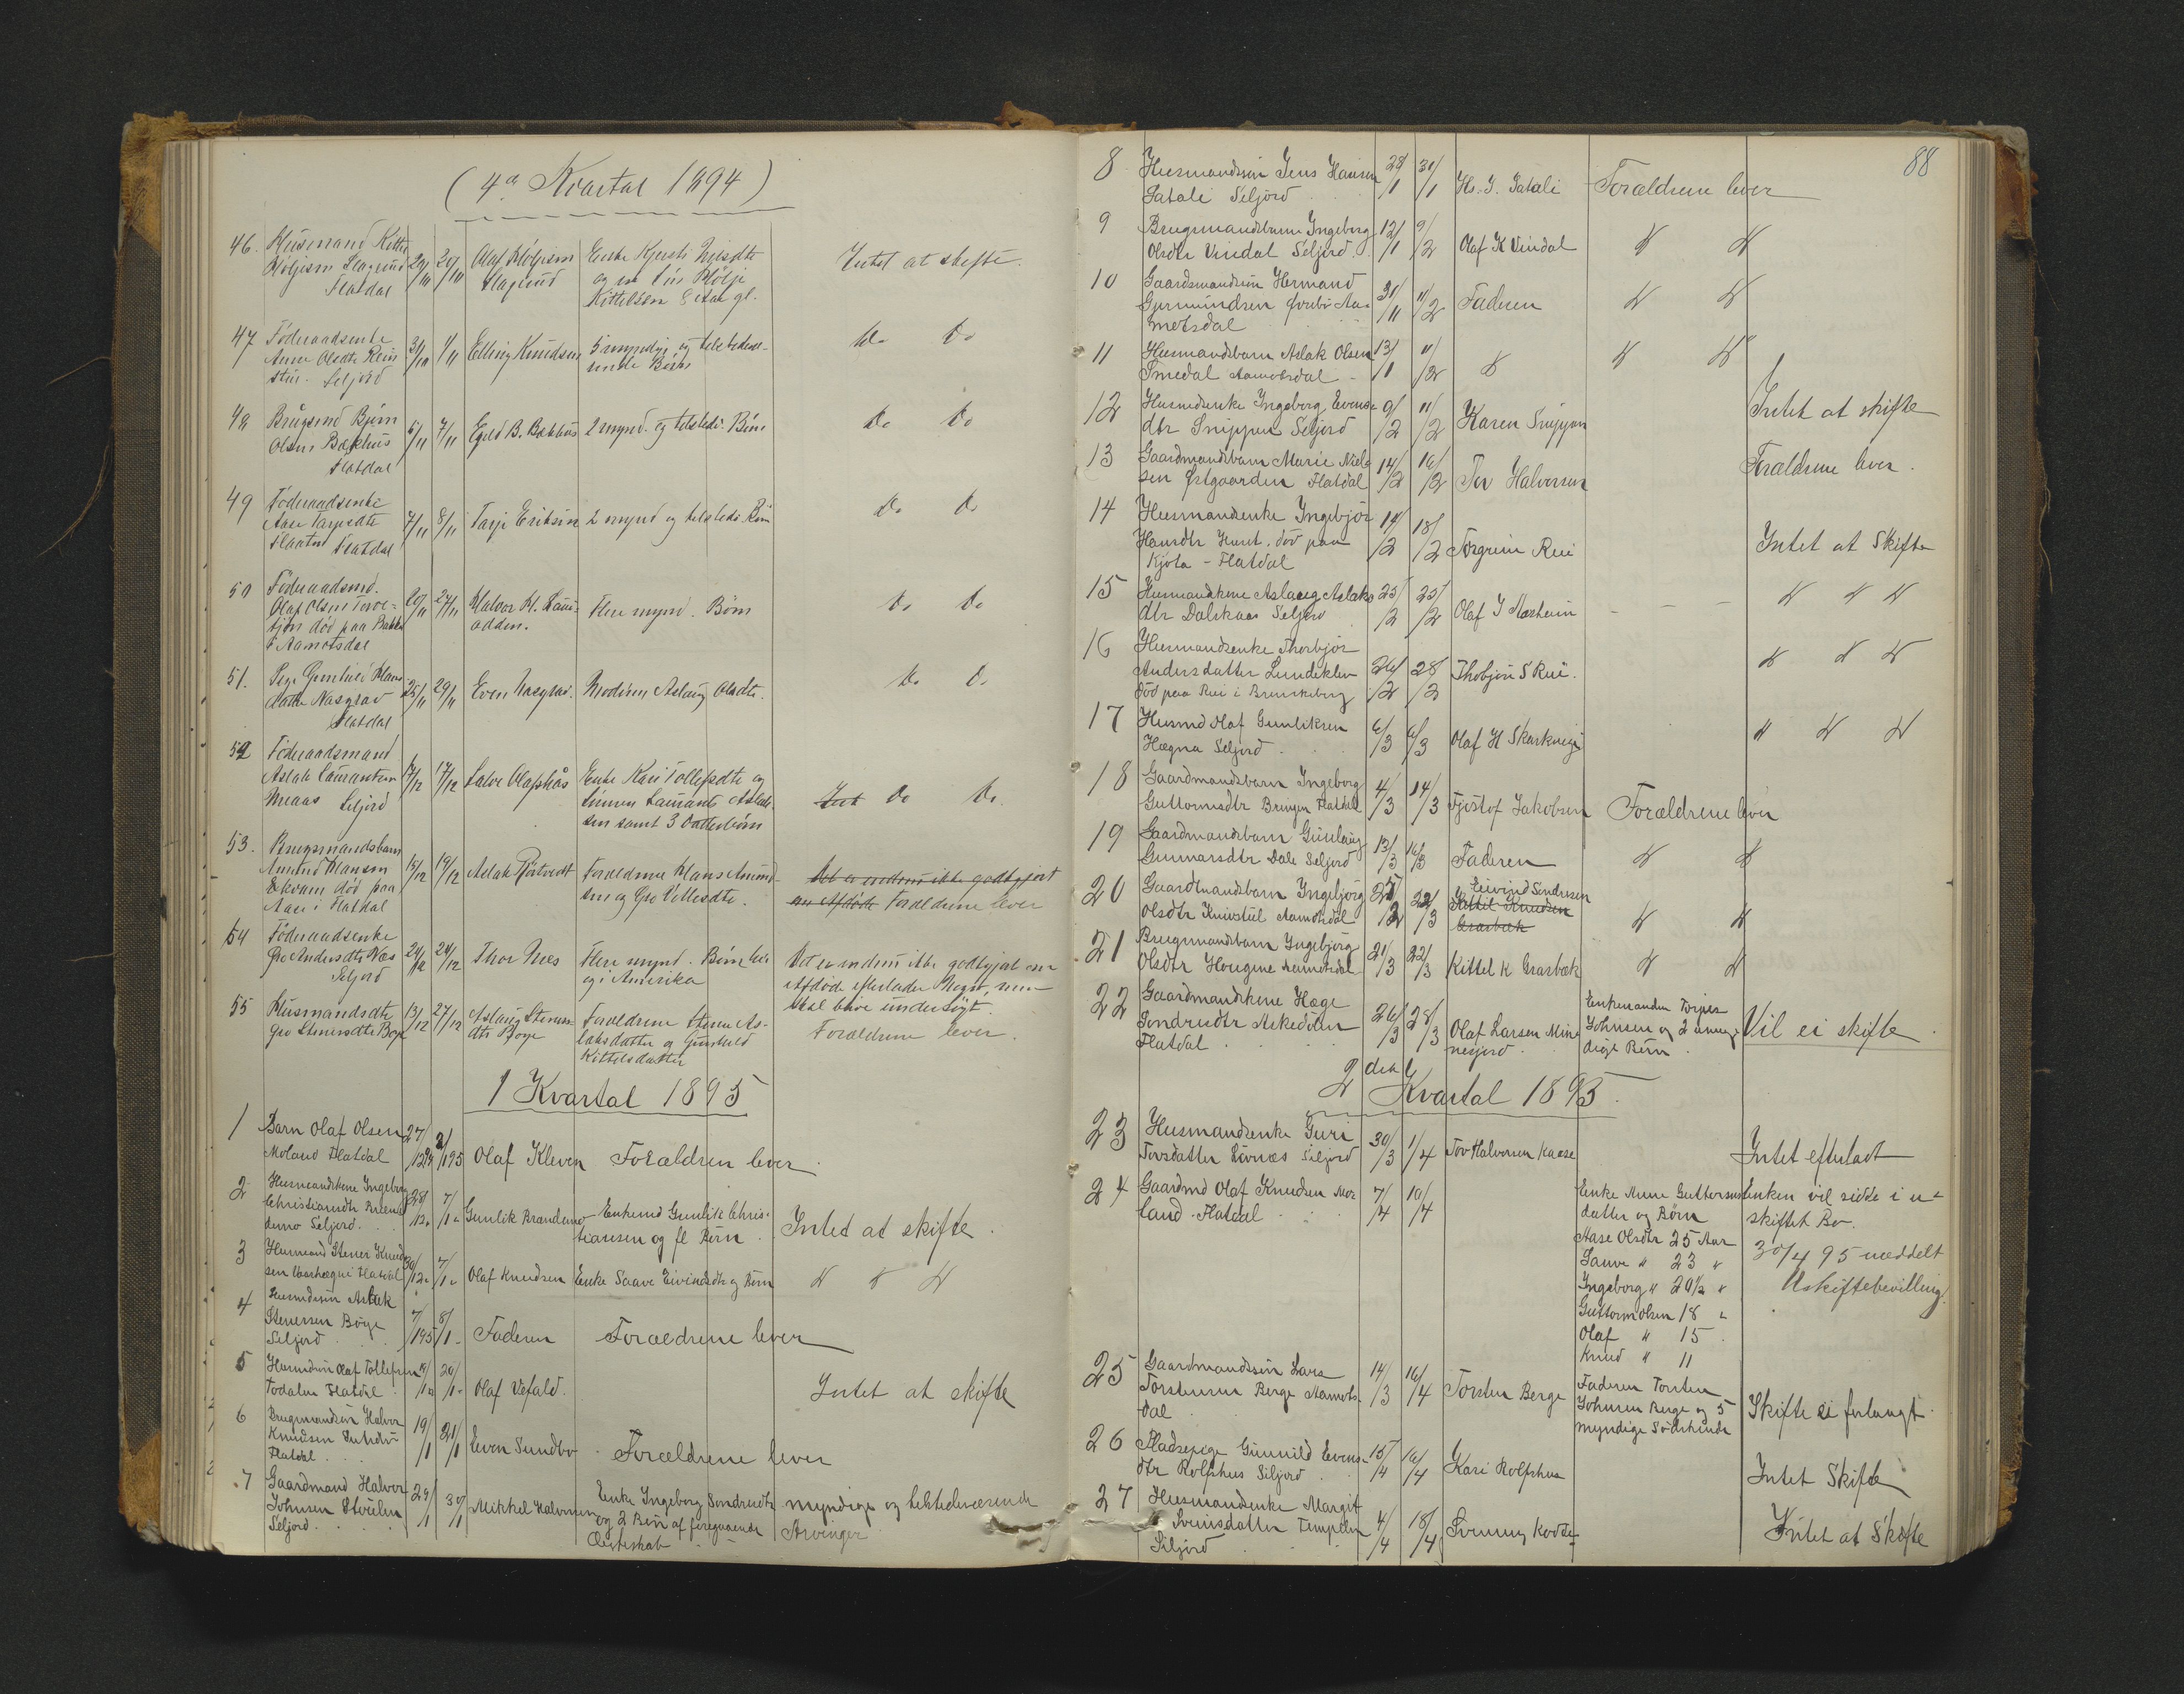 (4de Kvartal 1894)
46. Husmand Kittil
Høljesen Slagrud
Flatdal
29/10 29/10
Olaf Høljesen
Slagrud
Enke Kjersti
og en Søn Hølje
Kittilsen 8 Aar gl.
Intet at skifte.
47 Føderaadsenke
Anne Olsdtr Rein
Seljord
31/10 1/11
Elling Knudsen
5 myndige og tilstedevæ-
rende Børn
Do Do
48 Brugsmd Bjørn
Olsen Bakhus
Flatdal
6/11 7/11
Egild B. Bakhus
2 mynd. og tilstede. Børn
Do Do
49 Føderaadsenke
Aase Tarjesdtr
Slaatta Flatdal
7/11 8/11
Tarje Eriksen
2 mynd og tilstede. Børn
Do Do
50 Føderaadsmd.
Olaf Olsen
død paa Bakka
i Aamotsdal
20/11 27/11
Halvor H.
odden.
Flere mynd. Børn
Do Do
51. Pige Gunhild Hans
datter Nasgrav
Flatdal
25/11 29/11
Even Nasgrav.
Moderen Aslaug Olsdtr.
Do Do
52 Føderaadsmand
Aslak Laurantsen
Meaas Seljord
17/12 17/12
Salve Olafskås
Enke Kari Tollefsdtr og
Sønnen Laurants Aslak-
sen samt 3 Datterbørn
Intet Do Do.
53. Brugsmandsbarn
Amund Hansen
Ekvam død paa
Aase i Flatdal
15/12 19/12
Aslak Hjortvedt
Forældrene Hans Amund-
sen og Gro Villesdtr.
Det er endnu ikke godtgjort
om Afdøde Forældrene lever
54 Føderaadsenke
Gro Andersdtr Næs
Seljord
24/12 24/12
Thor Næs
Flere mynd. Børn her
og i Amerika
Det er endnu ikke godtgjort om
Afdøde efterlader Noget, men
skal blive undersøgt.
55 Husmandsdtr
Gro Stenersdtr Børge
13/12 27/12
Aslaug Steners-
dtr Børge
Forældrene Stener As-
laksdatter og Gunhild
Kittelsdatter
Forældrene lever.
1 Kvartal 1895
1 Barn Olaf Olsen
Moland Flatdal
27/12 94 2/1 95
Olaf Kleven
Forældren lever
2 Husmandskone Ingeborg
Christiansdtr Brænd
demo Seljord.
28/12 7/1
Gunlik Brændemo
Enkemd Gunlik Chris-
tiansen og fl Børn
Intet at skifte
3 Husmand Stener Knud
sen Flatdal
30/12 7/1
Olaf Knudsen
Enke Saave Eivindsdtr og Børn
d d d
4 Husmdssøn Aslak
Stenersen Børge
Seljord
7/1 95 8/1
Faderen
Forældrene lever
5 Husmdssøn Olaf Tollefsen
Todalen Flatdal
19/1 20/1
Olaf Vefald.
Intet at skifte
6 Brugsmandssøn Halvor
Knudsen Sundbø
Flatdal
19/1 21/1
Even Sundbø
Forældrene lever
7 Gaardmand Halvor
Johnsen Støilen
Seljord
29/1 30/1
Mikkel Halvorsen
Enke Ingeborg Sondresdtr
og 2 Børn af foregaaende
Ægteskab
myndige og tilstedeværende
Arvinger
88
8 Husmandssøn Jens Hansen
Jatali Seljord
28/1 31/1
Hs. J. Jatali
Forældrene lever
9 Brugsmandsbarn Ingeborg
Olsdtr Vindal Seljord.
12/1 9/2
Olaf K Vindal
d d
10 Gaardmandssøn Hermand
Gjermundsen Øvrebø Aa-
motsdal
31/11 11/2
Faderen
d d
11 Husmandsbarn Aslak Olsen
Smedal Aamotsdal
13/1 11/2
d
d d
12 Husmdsenke Ingeborg Evens-
dtr Snippen Seljord
9/2 11/2
Karen Snippen
Intet at skifte
13 Gaardmandsbarn Marie Niel-
sen Østgaarden Flatdal
14/2 16/2
Tor Halvorsen
Forældrene lever.
14 Husmandsenke Ingebjør
Hansdtr død paa
Kjota - Flatdal
14/2 18/2
Torgrim Rui
Intet at Skifte
15 Husmandskone Aslaug Aslaks
dtr Dalskaas Seljord
23/2 25/2
Olaf J Næsheim
d d d
16 Husmandsenke Thorbjør
Andersdatter Lundeklev
død paa Rui i Brunkeberg
26/2 28/2
Thobjørn S Rui.
d d d
17 Husmd Olaf Gunliksen
Hægna Seljord
6/3 6/3
Olaf H Skarkveig
d d d
18 Gaardmandsbarn Ingeborg
Guttormsdtr Bringen Flatdal
4/3 14/3
Tjostof Jakobsen
Forældrene lever
19 Gaardmandsbarn Gunlaug
Gunnarsdtr Dale Seljord
13/3 16/3
Faderen
d d
20 Gaardmandsbarn Ingebjørg
Olsdtr Knivstul Aamotsdal
25/2 22/3
Eivind Sondresen
Kittil Knudsen
Grasbæk
d d
21 Brugsmandsbarn Ingebjørg
Olsdtr Hougene Aamotsdal
21/3 22/3
Kittel K Grasbæk
d d
22 Gaardmandskone Hæge
Sondresdtr Askedalen
Flatdal
26/3 28/3
Olaf Larsen Mine
nesjord
Enkemanden Torjus
Johnsen og 2 umyn-
dige Børn
Vil ei skifte
2 det Kvartal 1895.
23 Husmandsenke Guri
Torsdatter Livnæs Seljord
30/3 1/4
Tov Halvorsen Kaase
Intet efterladt
24 Gaardmd Olaf Knudsen Mo-
land. Flatdal
7/4 10/4
Enke Anne Guttorms-
datter og Børn
Aase Olsdtr 25 Aar
Saave " 23 "
Ingeborg " 20½ "
Guttorm Olsen 18 "
Olaf " 15
Knud " 11
Enken vil sidde i u-
skiftet Bo.
30/4 95 meddelt
Uskiftebevilling.
25 Gaardmandssøn Lars
Torstensen Berge Aamots-
dal
14/3 16/4
Torsten Berge
Faderen Torsten
Johnsen Berge og 5
myndige Sødskende
Skifte ei forlangt.
26 Pladsepige Gunnild Evens-
dtr Rolfshus Seljord
15/4 16/4
Kari Rolfshus
Intet Skifte
27 Husmandsenke Margit
Sveinsdatter Tempelen
Seljord
4/4 18/4
Svenung
Intet at Skifte